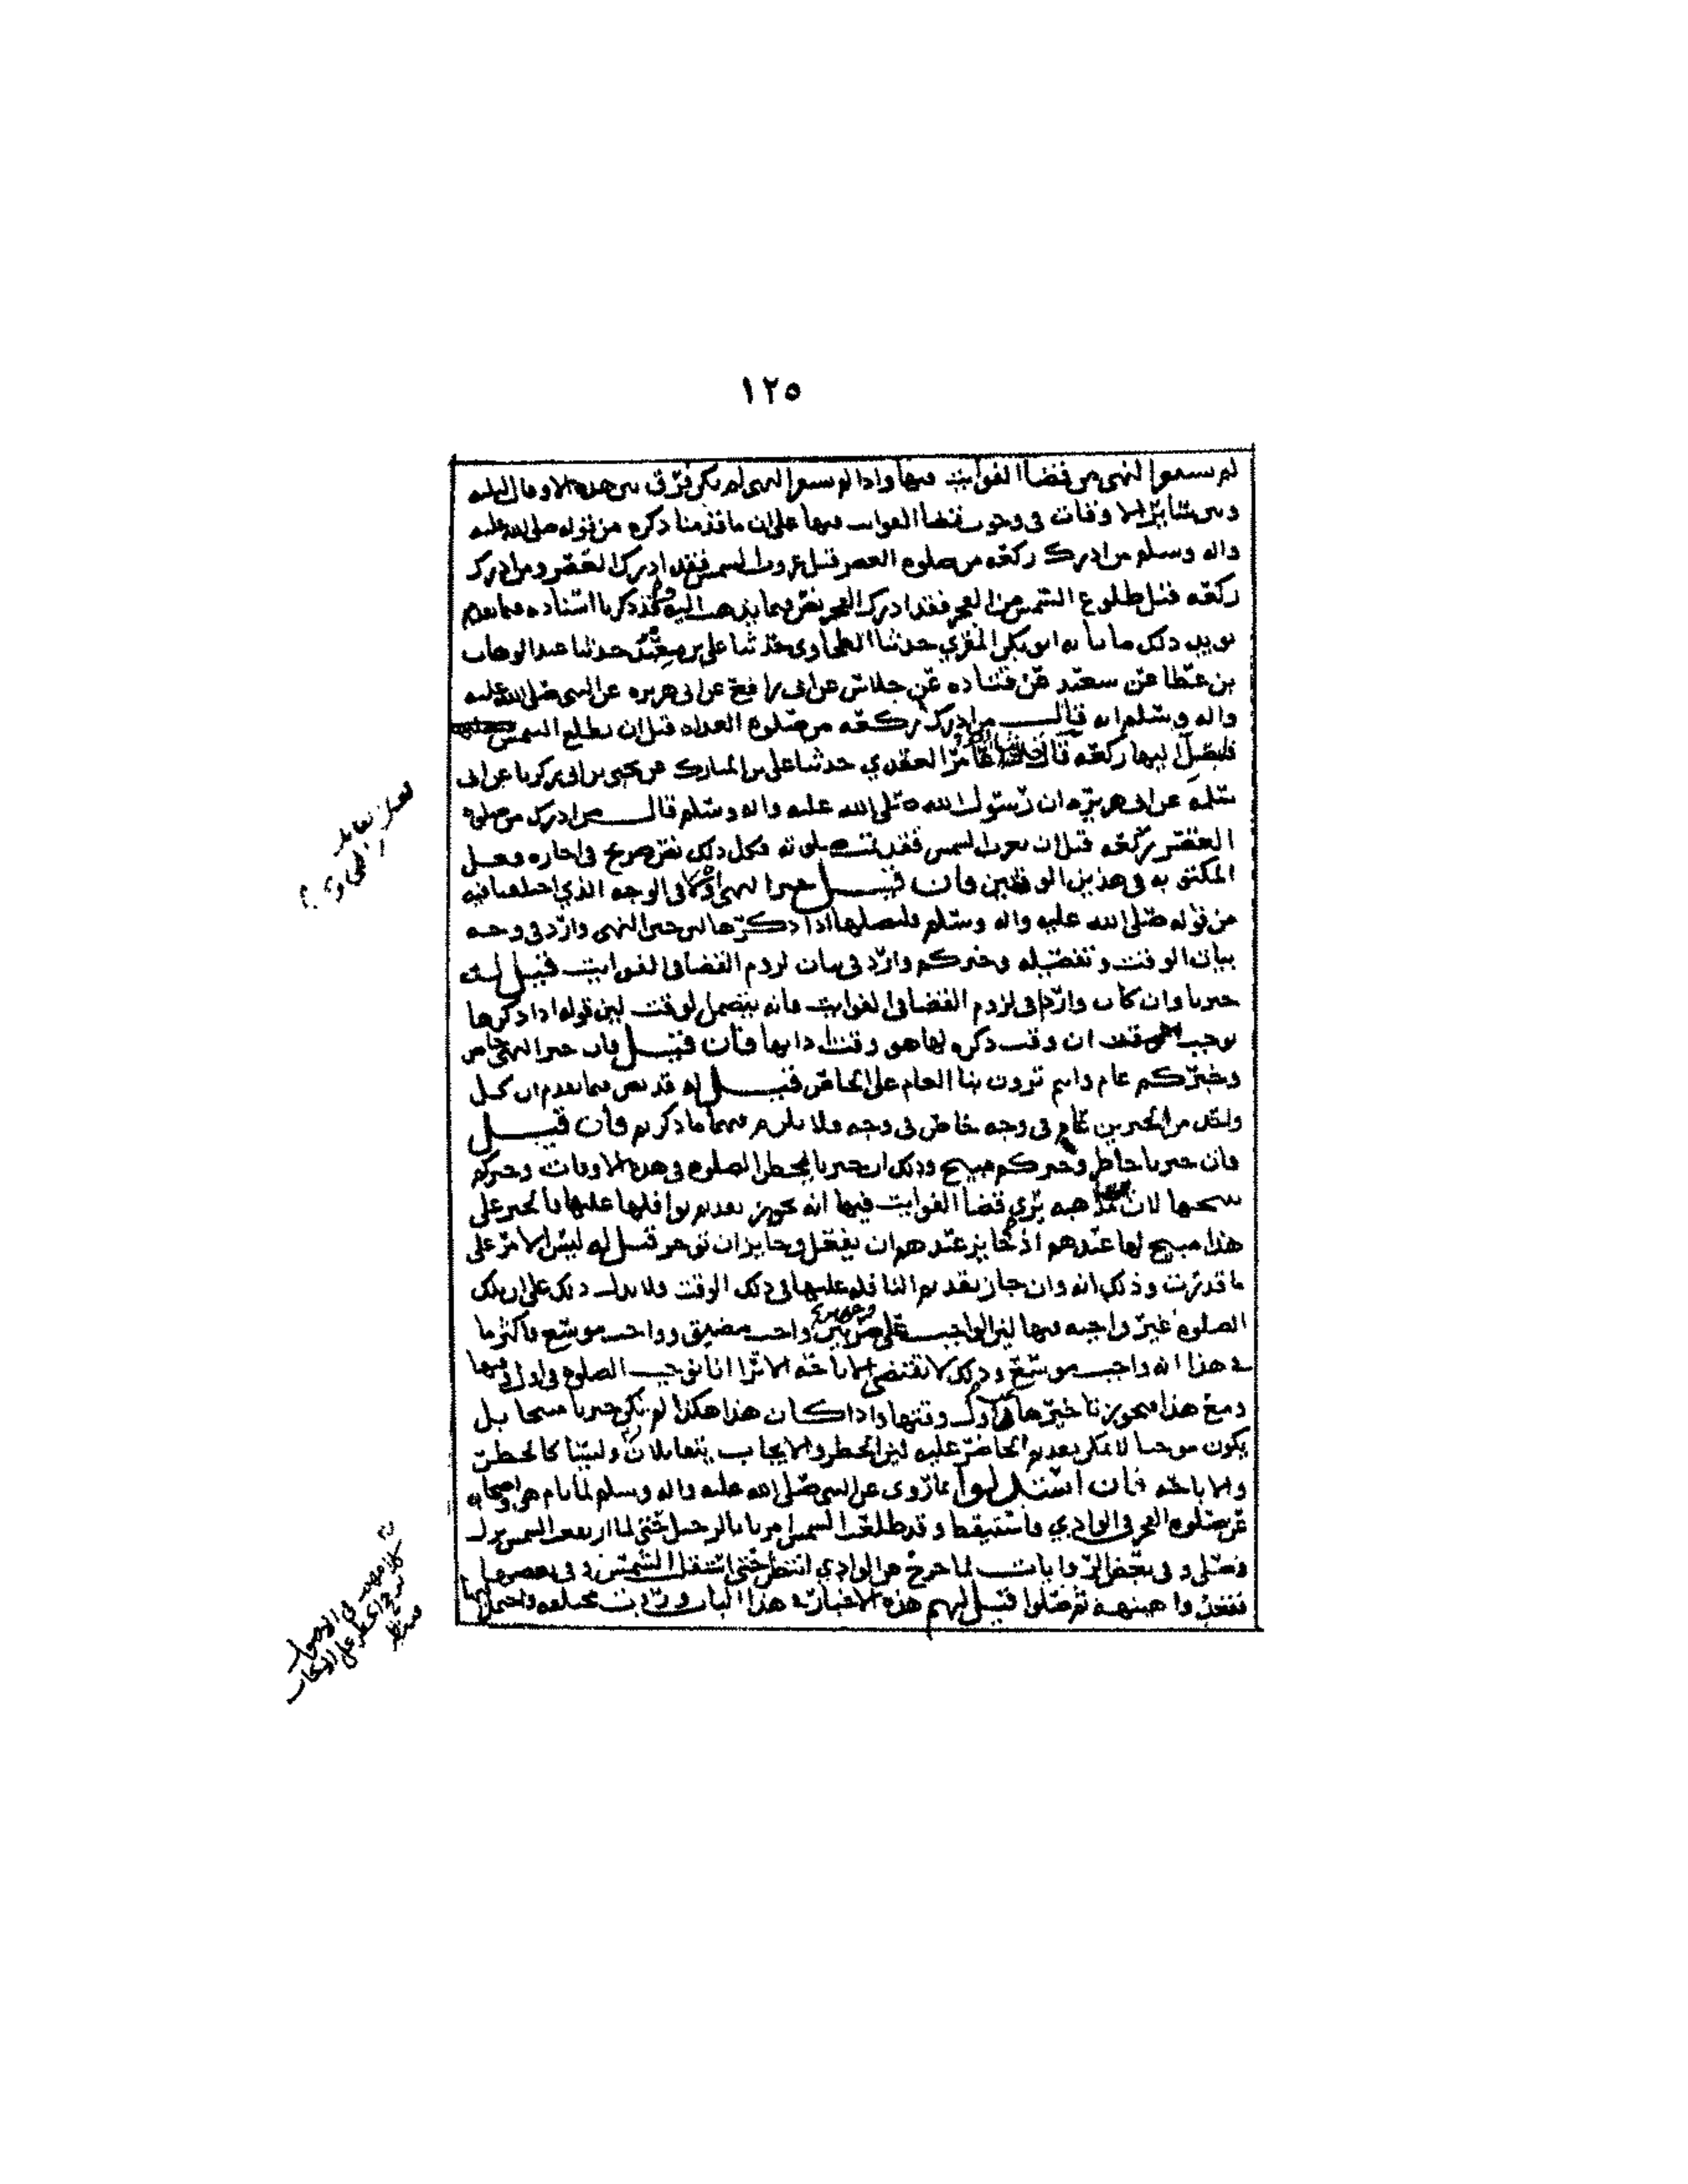 ١٢٥
لم يسمعوا النهي من قضا الفوايت فيها واذا لم يسمعوا النهي لم يكن فرق بين هذه الاوقات
وبين سائر الاوقات في وجوب قضا الفوايت فيها على ان ما قدمنا ذكره من قوله صلى الله عليه
واله وسلم من ادرك ركعة من صلوة العصر قبل غروب الشمس فقد ادرك العصر ومن ادرك
ركعة قبل طلوع الشمس من الفجر فقد ادرك الفجر نص فيما يذهب اليه وقد ذكرنا اسناده فيما تقدم
يويد ذلك ما نا به ابو بكر المقري حدثنا الطحاوي حدثنا علي بن معبد حدثنا عبد الوهاب
بن عطا عن سعيد عن قتادة عن خلاس عن ابي رافع عن ابي هريرة عن النبي صلى الله عليه
واله وسلم انه قال من ادرك ركعة من صلوة الغداة قبل ان تطلع الشمس
فليصل اليها ركعة قال حدثنا ابو عامر العقدي حدثنا علي بن المبارك عن يحيى بن ابي عن ابي
سلمة عن ابي هريرة ان رسول الله صلى الله عليه واله وسلم قال من ادرك من صلوة
العصر ركعة قبل ان تغرب الشمس فقد تمت صلوته فكل ذلك نص صريح في اجازة فعل
المكتوبة في هذين الوقتين فان قيل خبر النهي اولى في الوجه الذي اختلفنا فيه
من قوله صلى الله عليه واله وسلم فليصلها اذا ذكرها لان خبر النهي وارد في وجه
بيان الوقت وتفصيله وخبركم وارد في بيان لزوم القضا في الفوايت قيل له
خبرنا وان كان واردا في لزوم القضا في الفوايت فانه يتضمن الوقت لان قوله اذا ذكرها
يوجب ان وقت ذكره لها هو وقت ادايها فان قيل فان خبر النهي خاص
وخبركم عام وانتم ترون بنا العام على الخاص قيل له قد مضى فيما تقدم ان كل
واحد من الخبرين عام في وجه خاص في وجه ولا يلزم فيهما ما ذكرتم فان قيل
فان خبرنا حاظر وخبركم مبيح وذلك ان خبرنا يحظر الصلوة في هذه الاوقات وخبركم
يبيحها لان مذهبه يرى قضا الفوايت فيها انه يجوز تقديم نوافلها عليها فالخبر على
هذا مبيح لها عندهم اذ جايز عندهم ان يفعل وجايز ان توخر قيل له ليس الامر على
ما قدرت وذلك انه وان جاز تقديم النافلة عليها في ذلك الوقت فلا يدل ذلك على ان تلك
الصلوة غير واجبة فيها لان الواجب على ضربين واجب مضيق وواجب موسع فاكثر ما
في هذا انه واجب موسع وذلك لا يقتضي الاباحة الا ترا انا نوجب الصلوة في اول وقتها
ومع هذا فيجوز تاخيرها عن اول وقتها واذا كان هذا هكذا لم يكن خبرنا مبيحا بل
يكون موجبا لا يمكن تقديم الحاضر عليه لان الحظر والايجاب يتقابلان وليسا كالحظر
والاباحة فان استدلوا بما روي عن النبي صلى الله عليه واله وسلم لما نام هو واصحابه
عن صلوة الفجر في الوادي فاستيقظ وقد طلعت الشمس امرنا بالرحيل حتى لما ارتفعت الشمس نزل
وصلى وفي بعض الروايات لما خرج من الوادي انتظر حتى استقلت الشمس وفي بعضها
فقعدوا هنيهة ثم صلوا قيل لهم هذه الاخبار في هذا الباب وردت مختلفة واحتمل انها